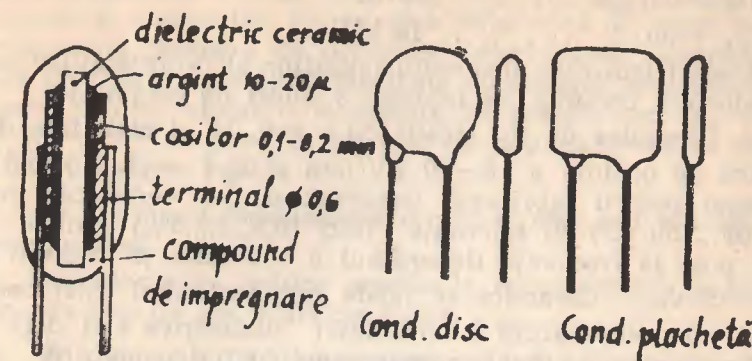 dielectric ceramic
argint 10-20µ
cositor 0,1-0,2 mm
terminal ϕ 0,6
compound
de impregnare
Cond. disc
Cond. plachetă